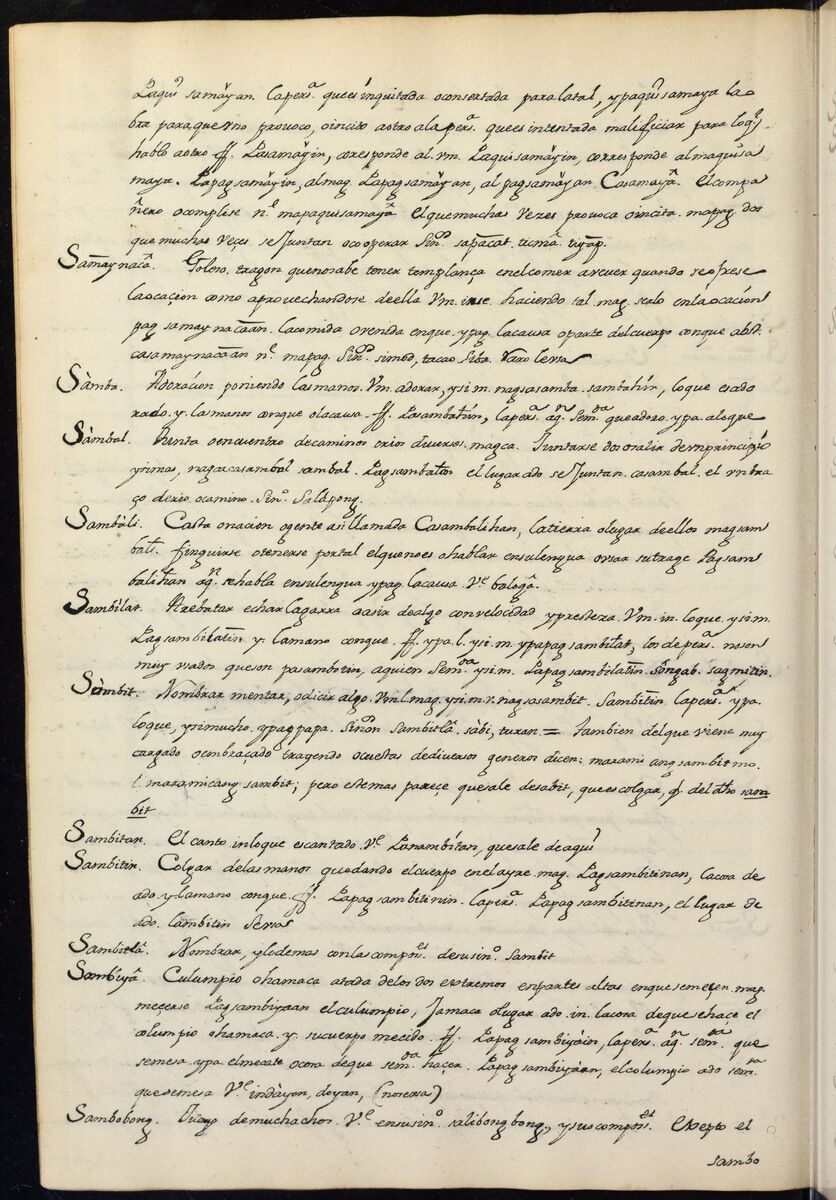 Paquisamãyan. la persa. que es inquitada o consertada para la tal, y paquisamaya la o
bra para que uno provoco, o incito a otro a la persa. que es intentada malificiar para lo qe
hablo a otro ff. Pasamãyin, coresponde al. vm. Paquisamãyin, corresponde al maquisa
maya. Papagsamãyin, al mag. Papagsamãyan, al pagsamãyan Casamayã. El compa
ñero o complise no. mapaquisamayã El que muchas vezes provoca o incita. mapag. dos
que muchas veçes se Juntan o cooperar Sinon.
Samaynacã. Goloso. tragon que no sabe tener templança en el comer a veuer quando se ofrese
la ocaçion como aprovechandose de ella Vm. in se. haciendo tal. mag. serlo en la ocacion
pag samaynacãan. la comida o venida en que. y pag. la causa o parte del cuerpo con que abst.
casamaynacãan no. mapag. Sinon. simod, tacao Siba.
Sàmba. Adoracion poniendo las manos. Vm. adorar, ysim. nagsasamba. sambahin, lo que es ado
rado. y. las manos con que o la causa. ff. Pasambahin, la persa. aqn. Semda que adore. y pa. a lo que
Sàmbal. Junta o encuentro de caminos o rios diversos. magca. Juntarse dos o salir de un principio
ysimas, nagcacasambal sambal. Pagsambalan el lugar ado se Juntan. casambal. el un bra
ço de rio o camino. Sino. Salapong.
Sambàli. Casta o nacion o gente asi llamada Casambalihan, la tierra o lugar de ellos magsam
bali. finguirse o tenerse por tal el que no es o hablar en su lengua o usar su trage Pagsam
balihan aqn. se habla en su lengua y pag. la causa. Ve. balogã.
Sambilat. Arebatar echar la garra o asir de algo con velocidad y presteza. Vm. in. lo que. ysim.
Pagsambilatin y. la mano con que. ff. y pa. l. ysim. y papagsambilat, los de persa. no son
muy usados que son pasambotin, a quien Semda ysim. Papagsambilatin. songab. sagmitin.
Sàmbit. Nombrar mentar, o dicir algo. Vm. l. mag. ysim. r. nagsasambit. Sambitin. la persa. y pa.
lo que, ysi mucho. y pag papa. Sinon Sambitlã. sabi, turan = tambien del que viene muy
cargado o embraçado trayendo o cuestas de diversos generos dicen: maramis ang sambit mo.
l. maramicang sambit; pero este mas pareçe que sale de sabit, que es colgar, q. del dho sam
bit
Sambitan. El canto in lo que es cantado. Ve. Panambitan, que sale de aqui
Sambitin. Colgar de las manos quedando el cuerpo en el ayre. mag. Pagsambitinan, la cosa de
ado. y la mano con que. ff. Papagsambitinin. la persa. Papagsambitinan, el lugar de
ado. lambitin
Sambitlã. Nombrar, y lo demas con las composes. de su sino. Sambit
Sambiyã. Culumpio o hamaca atada de los dos extremos en partes altas en que se meçen. mag.
meçerse Pagsambiyaan el culumpio, Jamaca o lugar ado. in. la cosa de que se hace el
columpio o hamaca. y. su cuerpo mecido. ff. Papagsambiyàin, la persa. aqn. semda. que
se mesa. y pa. el mecate o cosa de que semda. haçer. Papagsambiyaan, el columpio ado semda.
que se mesa Ve. indàyon, doyan, (no versa)
Sambobong. Juego de muchachos. Ve. en su sino. salibongbong, y sus composes. Exepto el
sambo